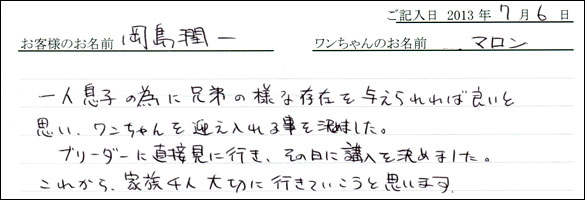 ご記入日 2013 年 7 月 6 日
お客様のお名前 岡島潤一 ワンちゃんのお名前 マロン
一人息子の為に兄弟の様な存在を与えられれば良いと
思い、ワンちゃんを迎え入れる事を決めました。
ブリーダーに直接見に行き、その日に講入を決めました。
これから、家族4人大切に行きていこうと思います。